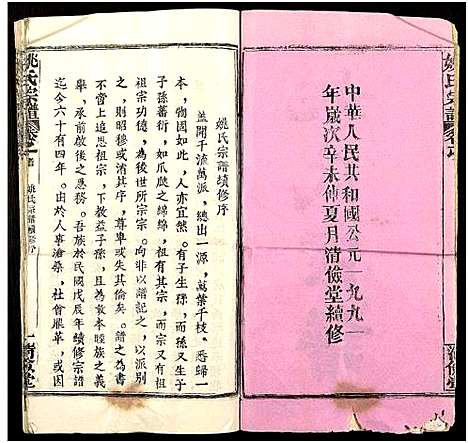 中華人民共和國公元一九九一
年歲次辛未仲夏月清儉堂續修
姚氏宗譜
清儉堂
姚氏宗譜續修序
蓋聞千流萬派，總出一源，萬葉千枝，悉歸一
本，物固如此，人亦宜然。有子生孫，而有孫生
子孫蕃衍，如瓜瓞之綿綿，祖有其宗，而宗有其
祖宗功德，為後世所宗。向非以譜記之，以派別
之，則昭穆或淆其序，尊卑或失其倫矣。譜之為書
不晋上追思祖宗，下教益子孫，且為敦本睦族之義
舉，承前啟後之急務。吾族於民國戊辰年續修宗譜
迄今六十有四年。由於人事滄桑，杜曾雁革，或因
姚氏宗譜
姚氏宗譜續修序
一
清儉堂